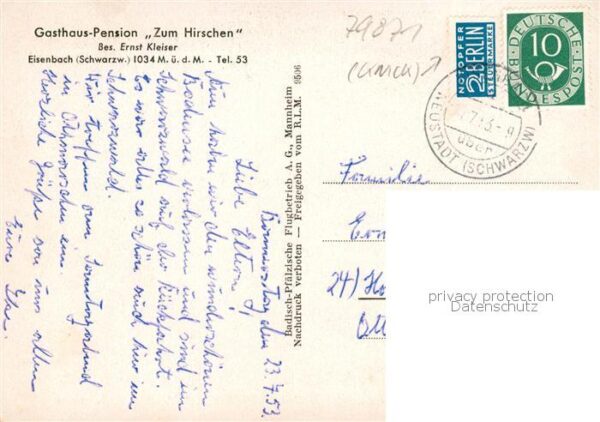 Gasthaus-Pension „Zum Hirschen"
Bes. Ernst Kleiser
Eisenbach (Schwarzw.) 1034 M. ü. d. M. - Tel. 53
Donnerstag den 23.7.53.
Liebe Eltern!
Nun haben wir den wunderschönen
Bodensee verlassen und sind im
Schwarzwald auf der Rückfahrt.
Es war alles so schön auch hier im
Schwarzwald.
Wir treffen am Sonntagabend
in ein.
Herzliche Grüße von uns allen
Eure
Badisch-Pfälzische Flugbetrieb A. G., Mannheim 9596
Nachdruck verboten — Freigegeben vom R.L.M.
79871
NOTOPFER
2 BERLIN
STEUERMARKE
DEUTSCHE
BUNDESPOST
10
NEUSTADT (SCHWARZW)
über
Familie
24)
privacy protection
Datenschutz